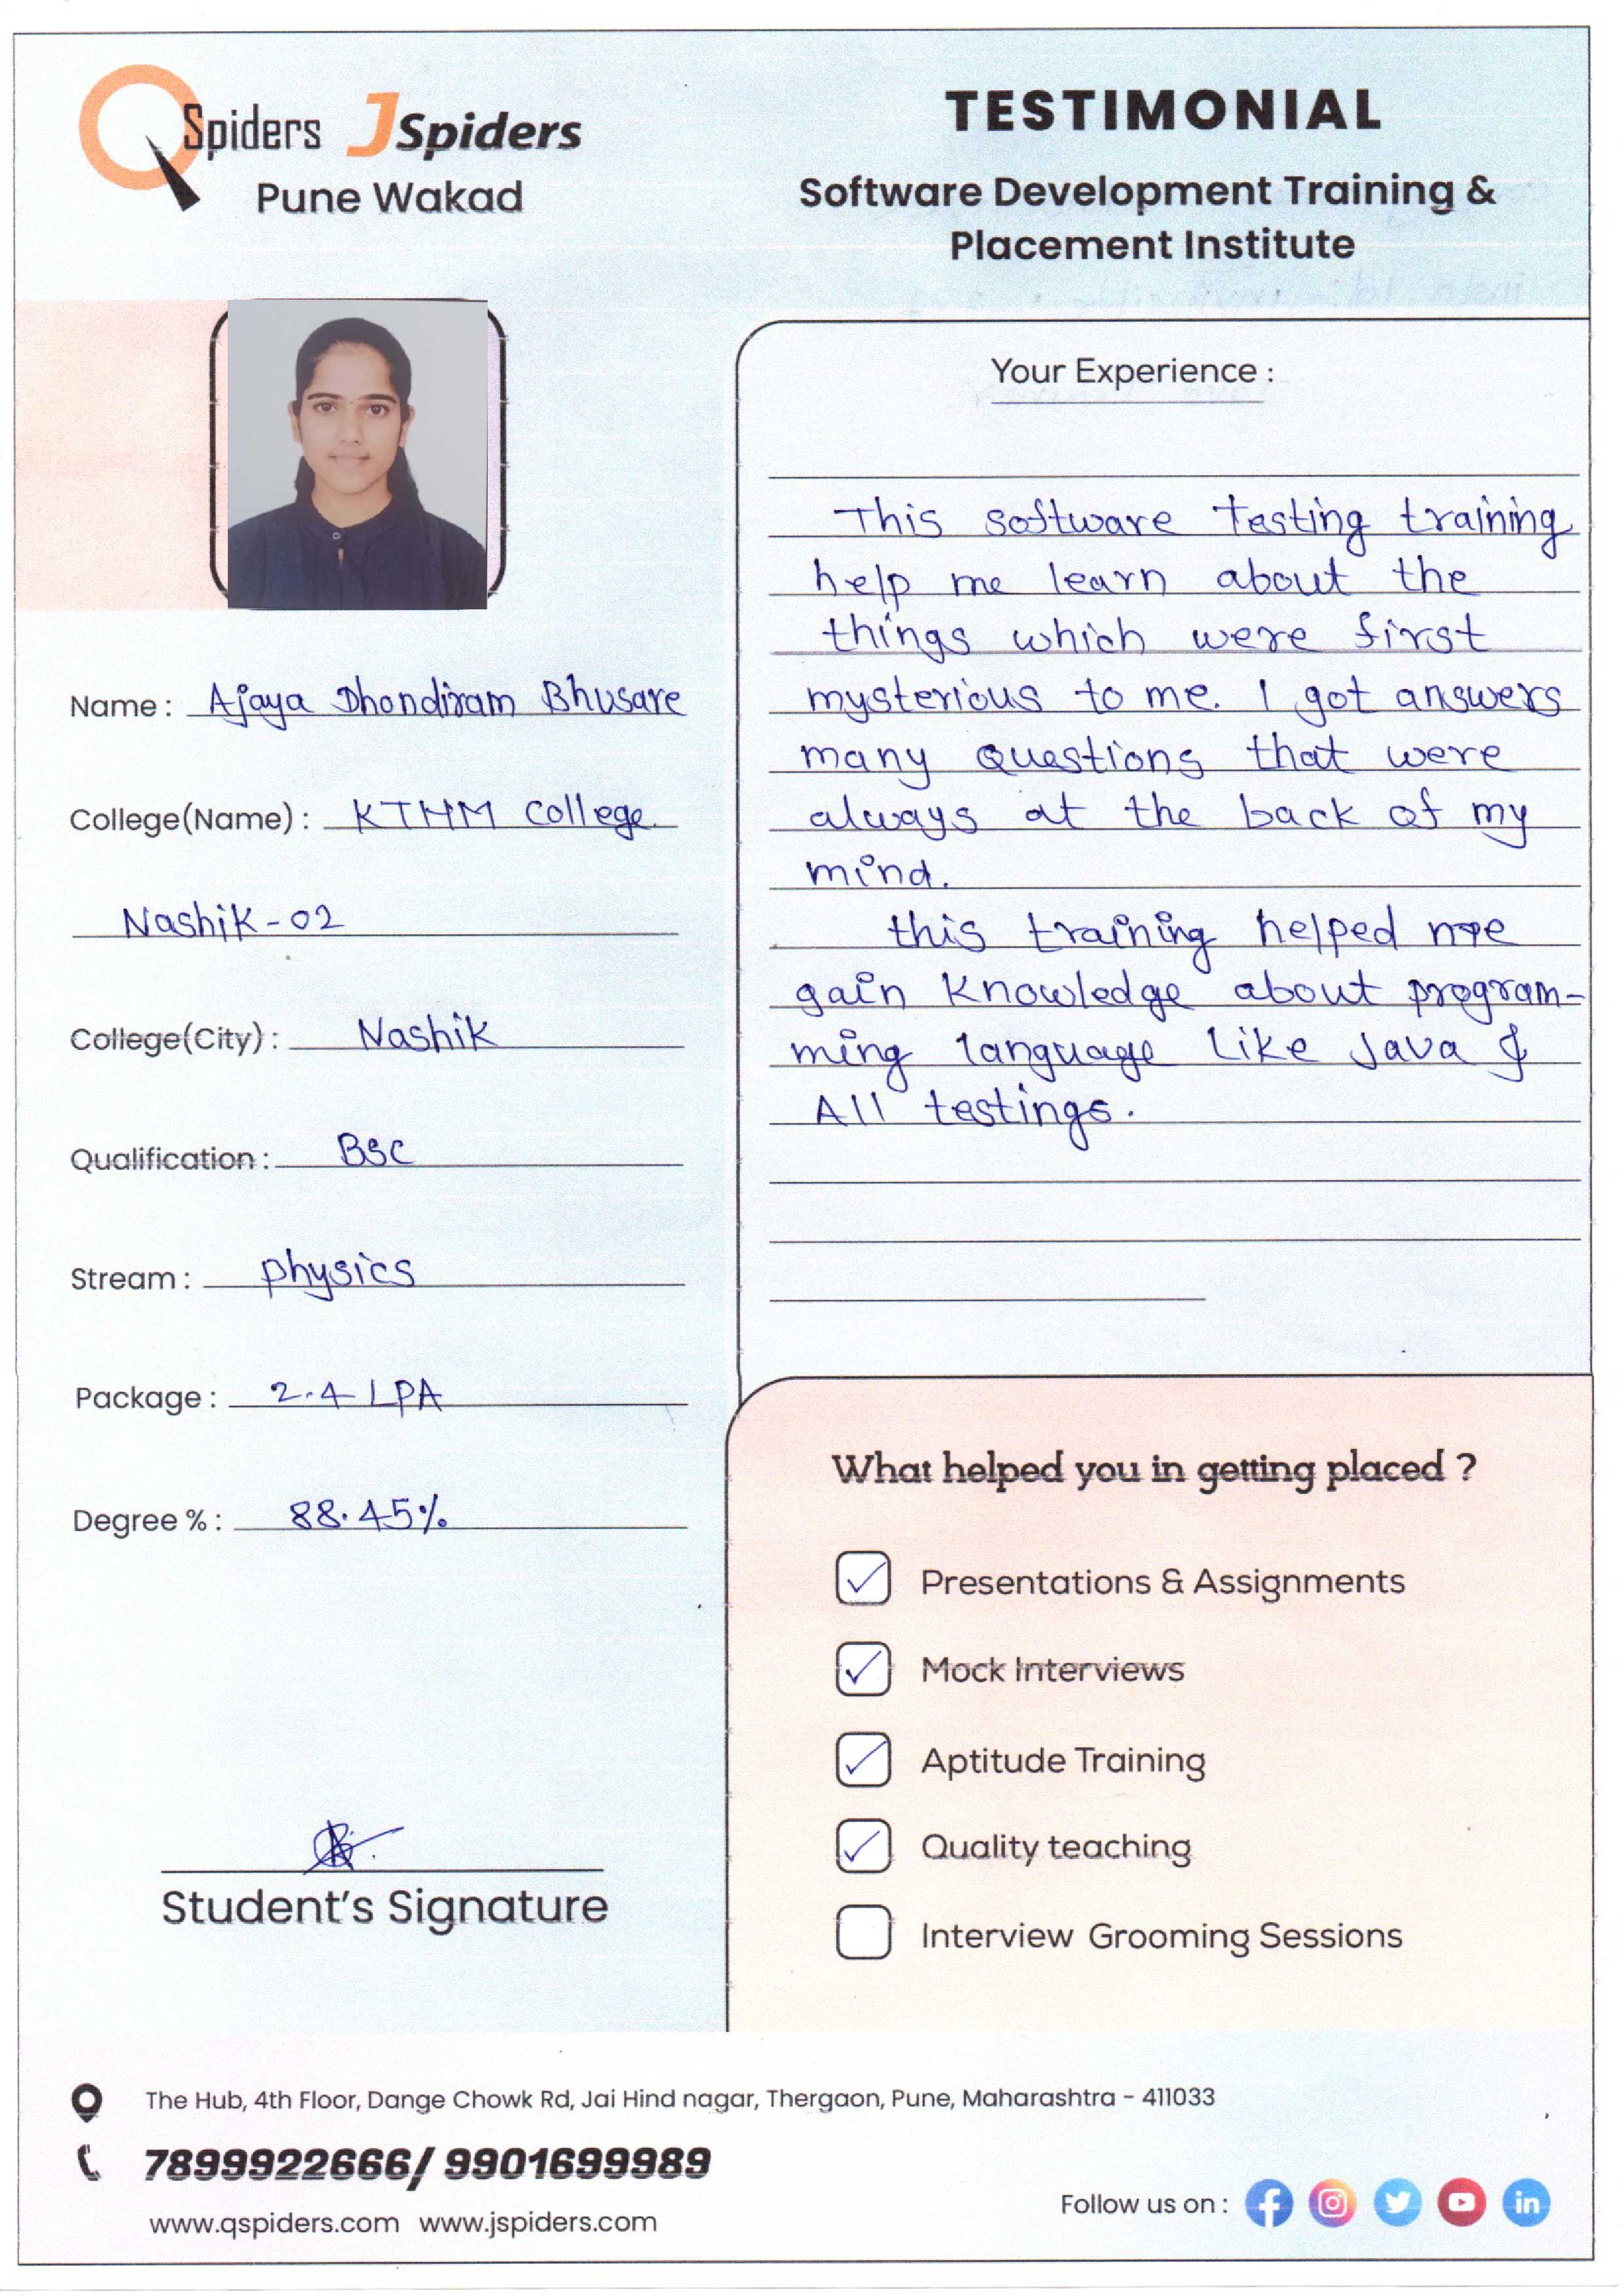 QSpiders JSpiders
Pune Wakad
TESTIMONIAL
Software Development Training &
Placement Institute
Name : Ajaya Dhondiram Bhusare
College(Name) : KTHM College.
Nashik-02
College(City) : Nashik
Qualification : BSC
Stream : physics
Package : 2.4 LPA
Degree % : 88.45%
Student's Signature
Your Experience :
This software testing training
help me learn about the
things which were first
mysterious to me. I got answers
many questions that were
always at the back of my
mind.
this training helped me
gain knowledge about program-
ming language like Java &
All testings.
What helped you in getting placed ?
Presentations & Assignments
Mock Interviews
Aptitude Training
Quality teaching
Interview Grooming Sessions
The Hub, 4th Floor, Dange Chowk Rd, Jai Hind nagar, Thergaon, Pune, Maharashtra - 411033
7899922666/ 9901699989
www.qspiders.com www.jspiders.com
Follow us on :